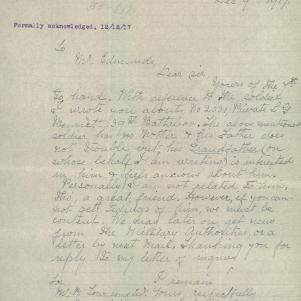 Dec 9. 1917.
Formally acknowledged, 12/12/17
To
W. Edmunds
Dear Sir
Yours of the 7th
to hand. With reference to the soldier
I wrote you about, No 2231 Private L G
30th Battalion. The above mentioned
soldier has no Mother & his Father does
not trouble but his Grandfather (on
whose behalf I am writing) is interested
in him & feels anxious about him.
Personally I am not related to him,
tho, a great friend. However, if you can
not get tidings of him, we must be
content. He may later on get news
from the Military Authorities, or a
letter by next mail. Thanking you for
reply to my letter of inquiry
I remain
for
Yours respectfully